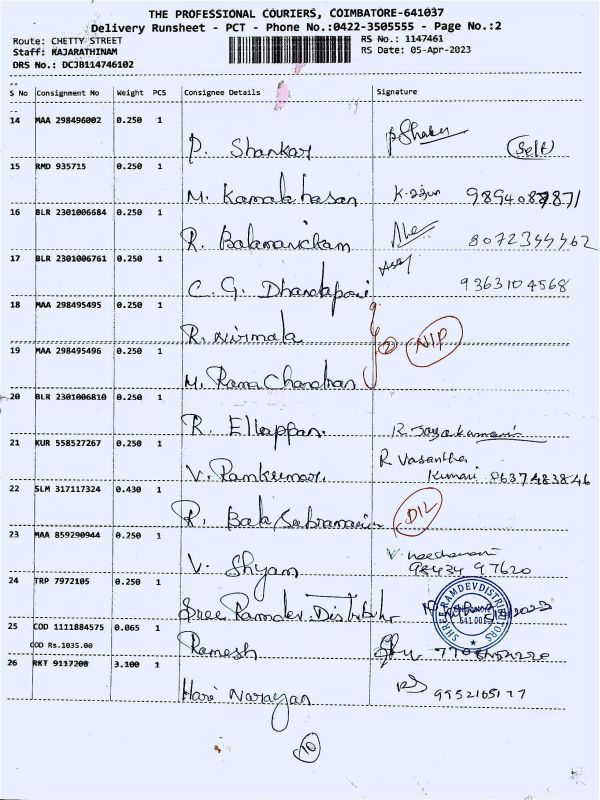 THE PROFESSIONAL COURIERS, COIMBATORE-641037
Delivery Runsheet - PCT - Phone No.:0422-3505555 - Page No.:2
Route: CHETTY STREET
RS No.: 1147461
Staff: KAJARATHINAM
RS Date: 05-Apr-2023
DRS No.: DCJB114746102
S No Consignment No Weight PCS Consignee Details Signature
14 MAA 298496002 0.250 1
P. Shankar (Self)
15 RMD 935715 0.250 1
M. Kamalahasan
16 BLR 2301006684 0.250 1
R. Balamanickam 8072344462
17 BLR 2301006761 0.250 1
C. G. Dhandapani 9363104568
18 MAA 298495495 0.250 1
R. Nirmala
2 NIP
19 MAA 298495496 0.250 1
M. Rama Chandran
20 BLR 2301006810 0.250 1
R. Ellappan.
21 KUR 558527267 0.250 1
R Vasantha
V. Ramkumar. Kumari 8637483846
22 SLM 317117324 0.430 1
R. Bala Subramanian DIL
23 MAA 859290944 0.250 1
V. Shyam 98434 97620
24 TRP 7972105 0.250 1
Sree Ramdev Distributor
SHREE RAMDEV DISTRIBUTORS
641 001
25 COD 1111884575 0.065 1
COD Rs.1035.00
Ramesh
26 RKT 9117208 3.100 1
Hari Narayan 9952165177
10